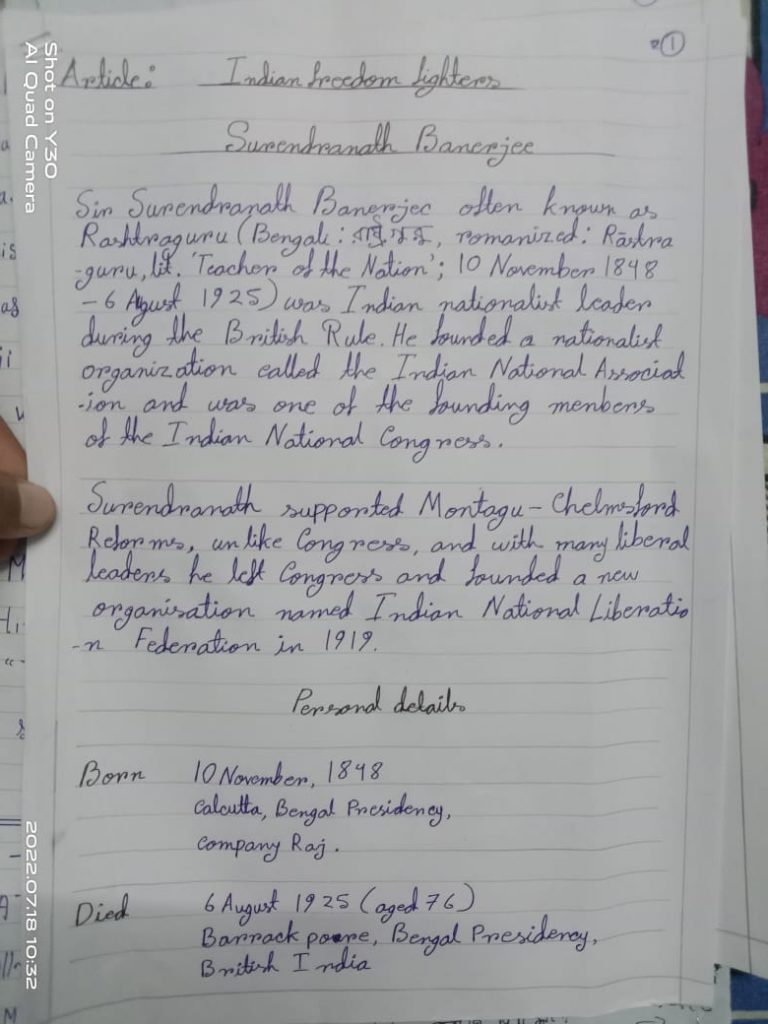 1
Article: Indian freedom fighters
Surendranath Banerjee
Sir Surendranath Banerjee often known as
Rashtraguru (Bengali: , romanized: Rāstra
-guru, lit. 'Teacher of the Nation'; 10 November 1848
- 6 August 1925) was Indian nationalist leader
during the British Rule. He founded a nationalist
organization called the Indian National Associat
-ion and was one of the founding menbers
of the Indian National Congress.
Surendranath supported Montagu - Chelmsford
Reforms, unlike Congress, and with many liberal
leaders he left Congress and founded a new
organisation named Indian National Liberatio
-n Federation in 1919.
Personal details
Born 10 November, 1848
Calcutta, Bengal Presidency,
Company Raj.
Died 6 August 1925 (aged 76)
Barrack poore, Bengal Presidency,
British India
Shot on Y30
AI Quad Camera
2022.07.18 10:32